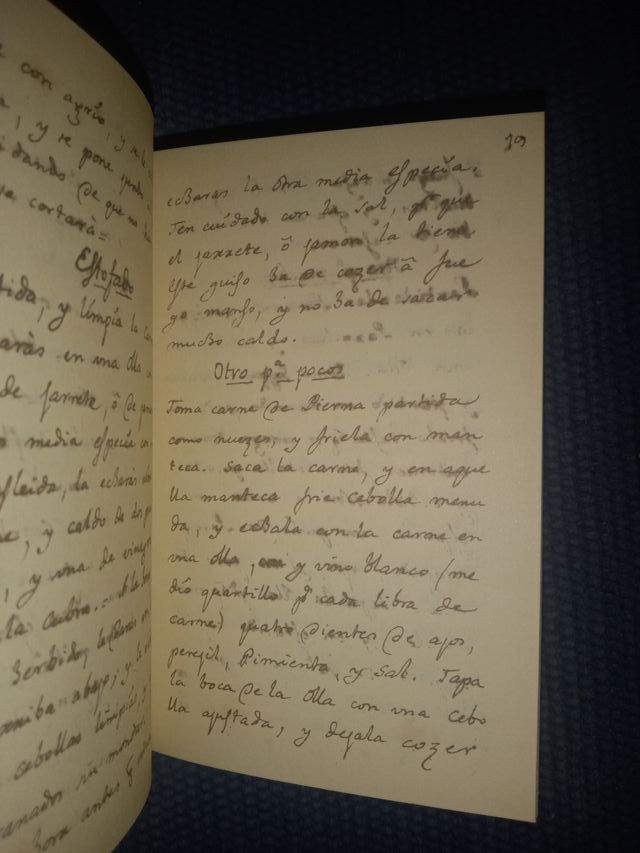 e con agrio, y se le
, y se pone
idando de que no
se cortarà=
Estofado
tida, y limpia la
aràs en vna olla
de jarrete, ô de
media especia
sleida, la echaràs
, y caldo de
, y vna de vinagre
ta cubra.
herbido,
arriba abajo, y
cebollas limpias,
hora antes
19
echaras la otra media especia.
Ten cuidado con la sal, pr. que
el jarrete, ô jamon la tiene.
Este guiso ha de cozer â fue
go manso, y no ha de sacar
mucho caldo.
Otro pa. pocos
Toma carne de Pierna partida
como nuezes, y friela con man
teca. Saca la carne, y en aque
lla manteca frie cebolla menu
da, y echala con la carne en
vna olla, y vino blanco (me
dio quartillo pa. cada libra de
carne) quatro dientes de ajos,
peregil, Pimienta, y Sal. Tapa
la boca de la olla con vna cebo
lla ajustada, y dejala cozer